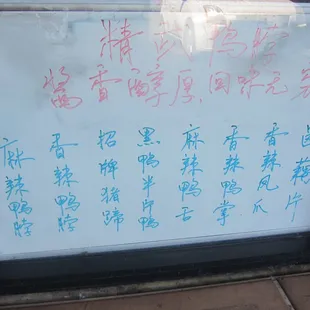 精武鸭脖
酱香醇厚.回味无
麻辣鸭脖
香辣鸭脖
招牌猪蹄
黑鸭半片鸭
麻辣鸭舌
香辣鸭掌
香辣凤爪
卤藕片